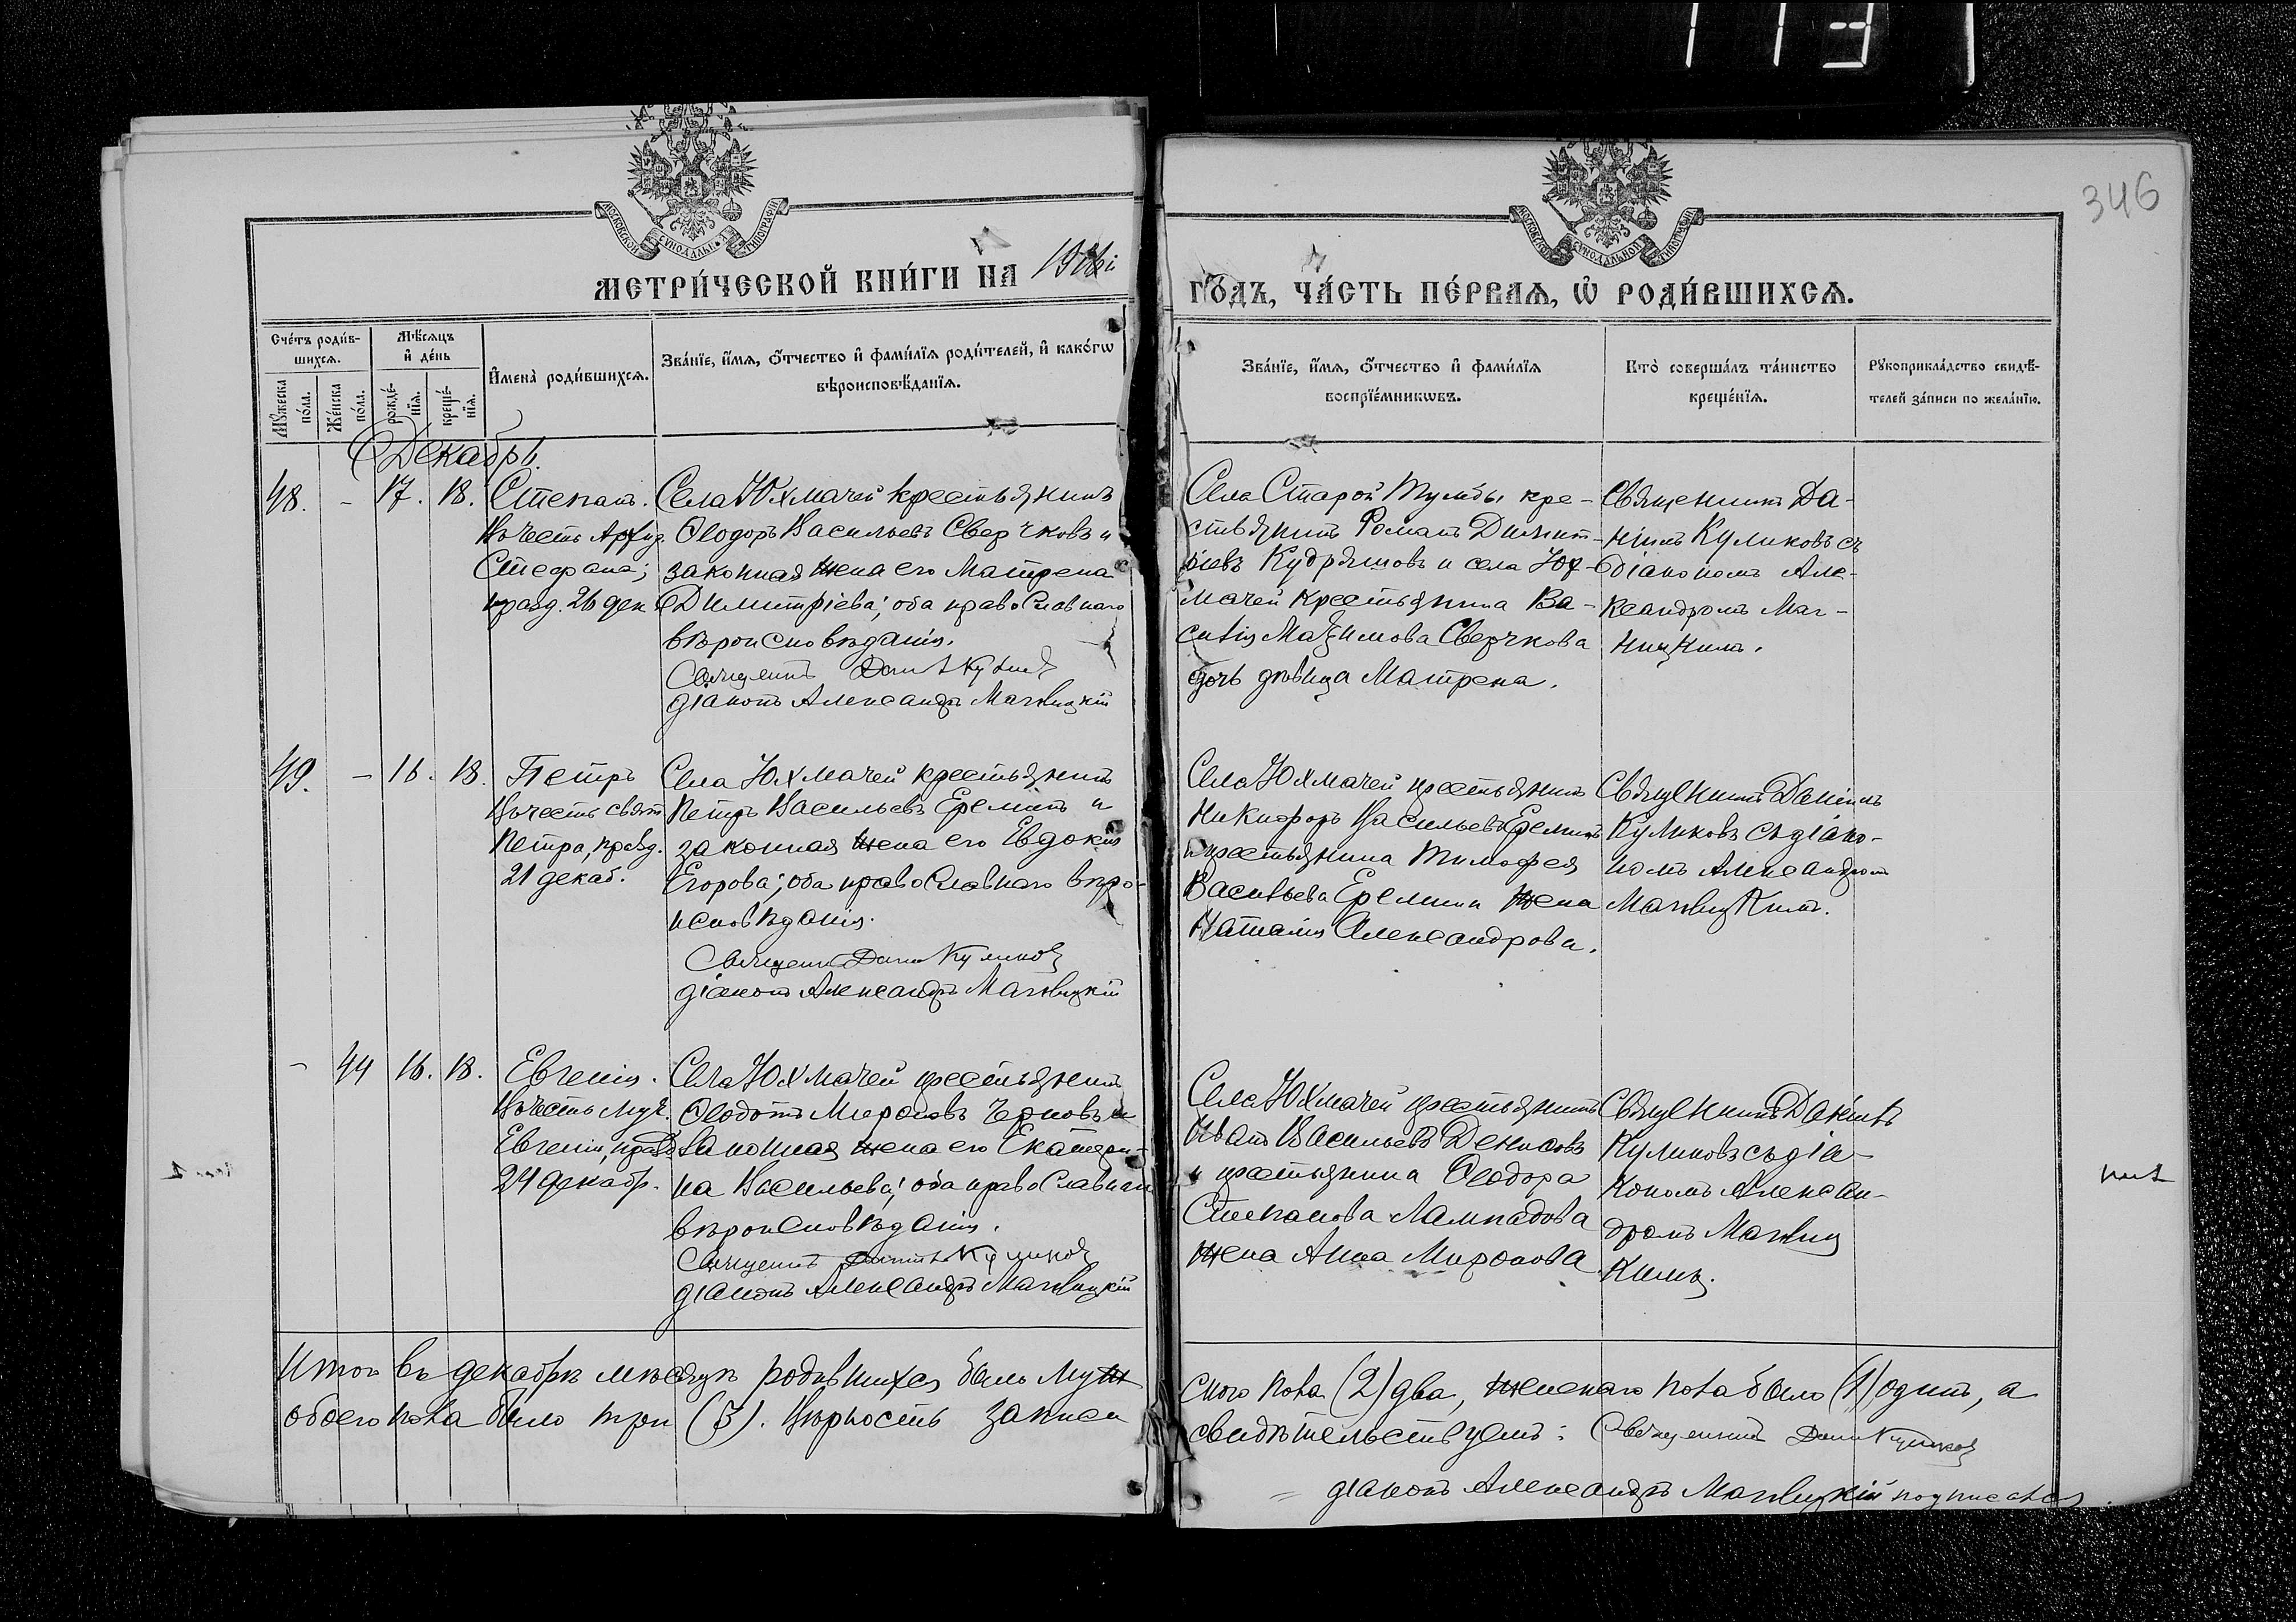 113
346
МОСКОВСКОЙ СѴНОДАЛЬНОЙ ТИПОГРАФІИ
МЕТРИ́ЧЕСКОЙ КНИ́ГИ НА
МОСКОВСКОЙ СѴНОДАЛЬНОЙ ТИПОГРАФІИ
ГО́ДЪ, ЧА́СТЬ ПЕ́РВАѦ, Ѡ҆ РОДИ́ВШИХСѦ.
Сче́тъ роди́в-
шихсѧ.
Мꙋ́жеска
по́ла.
Же́нска
по́ла.
Мѣ́сѧцъ
и҆ де́нь
рожде́-
нїѧ.
креще́-
нїѧ.
И҆мена̀ роди́вшихсѧ.
Зва́нїе, и҆́мѧ, ѻ҆́тчество и҆ фами́лїѧ роди́телей, и҆ како́гѡ
вѣроисповѣ́данїѧ.
Зва́нїе, и҆́мѧ, ѻ҆́тчество и҆ фами́лїѧ
воспрїе́мникѡвъ.
Кто̀ соверша́лъ та́инство
креще́нїѧ.
Рꙋкоприкла́дство свидѣ́-
телей за́писи по жела́нїю.
Декабрь.
48. - 17. 18.
Степанъ.
Въ честь Архид.
Стефана;
празд. 26 дек
Села Юхмачей крестьянинъ
Ѳеодоръ Васильевъ Сверчковъ и
законная жена его Матрена
Димитріева; оба православнаго
вѣроисповѣданія.
Священникъ Куликовъ
діаконъ Александръ Магницкій
Села Старой Тумбы кре-
стьянинъ Романъ Димит-
ріевъ Кудряшовъ и села Юх-
мачей крестьянина Ва-
силія Максимова Сверчкова
дочь дѣвица Матрена.
Священникъ Да-
ніилъ Куликовъ съ
діакономъ Але-
ксандромъ Маг-
ницкимъ.
49. - 16. 18.
Петръ
Въ честь свят.
Петра, празд.
21 декаб.
Села Юхмачей крестьянинъ
Петръ Васильевъ Ереминъ и
законная жена его Евдокія
Егорова; оба православнаго вѣро-
исповѣданія.
Священникъ Даніилъ Куликовъ
діаконъ Александръ Магницкій
Села Юхмачей крестьянинъ
Никифоръ Васильевъ Ереминъ
и крестьянина Тимофея
Васильева Еремина жена
Наталія Александрова.
Священникъ Даніилъ
Куликовъ съ діако-
номъ Александромъ
Магницкимъ.
- 44 16. 18.
Евгенія.
Въ честь муч.
Евгеніи, празд.
24 декабр.
Села Юхмачей крестьянинъ
Ѳеодотъ Мироновъ Черновъ и
законная жена его Екатери-
на Васильева; оба православнаго
вѣроисповѣданія.
Священникъ Даніилъ Куликовъ
діаконъ Александръ Магницкій
Села Юхмачей крестьянинъ
Иванъ Васильевъ Денисовъ
и крестьянина Ѳеодора
Степанова Лампадова
жена Анна Миронова.
Священникъ Даніилъ
Куликовъ съ діа-
кономъ Алексан-
дромъ Магниц
кимъ.
Итого въ декабрѣ мѣсяцѣ родившихся было муж
ского пола (2) два, женскаго пола было (1) одинъ, а
обоего пола было три (3). Вѣрность записи
свидѣтельствуемъ: Священникъ Даніилъ Куликовъ
діаконъ Александръ Магницкій подписался.